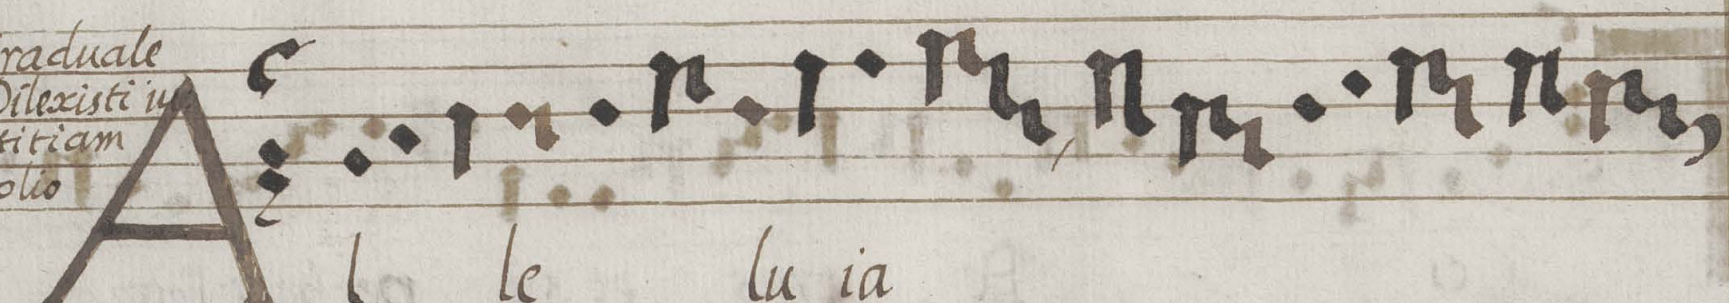 raduale
Dilexisti iu
titiam
olio
A l le lu ia